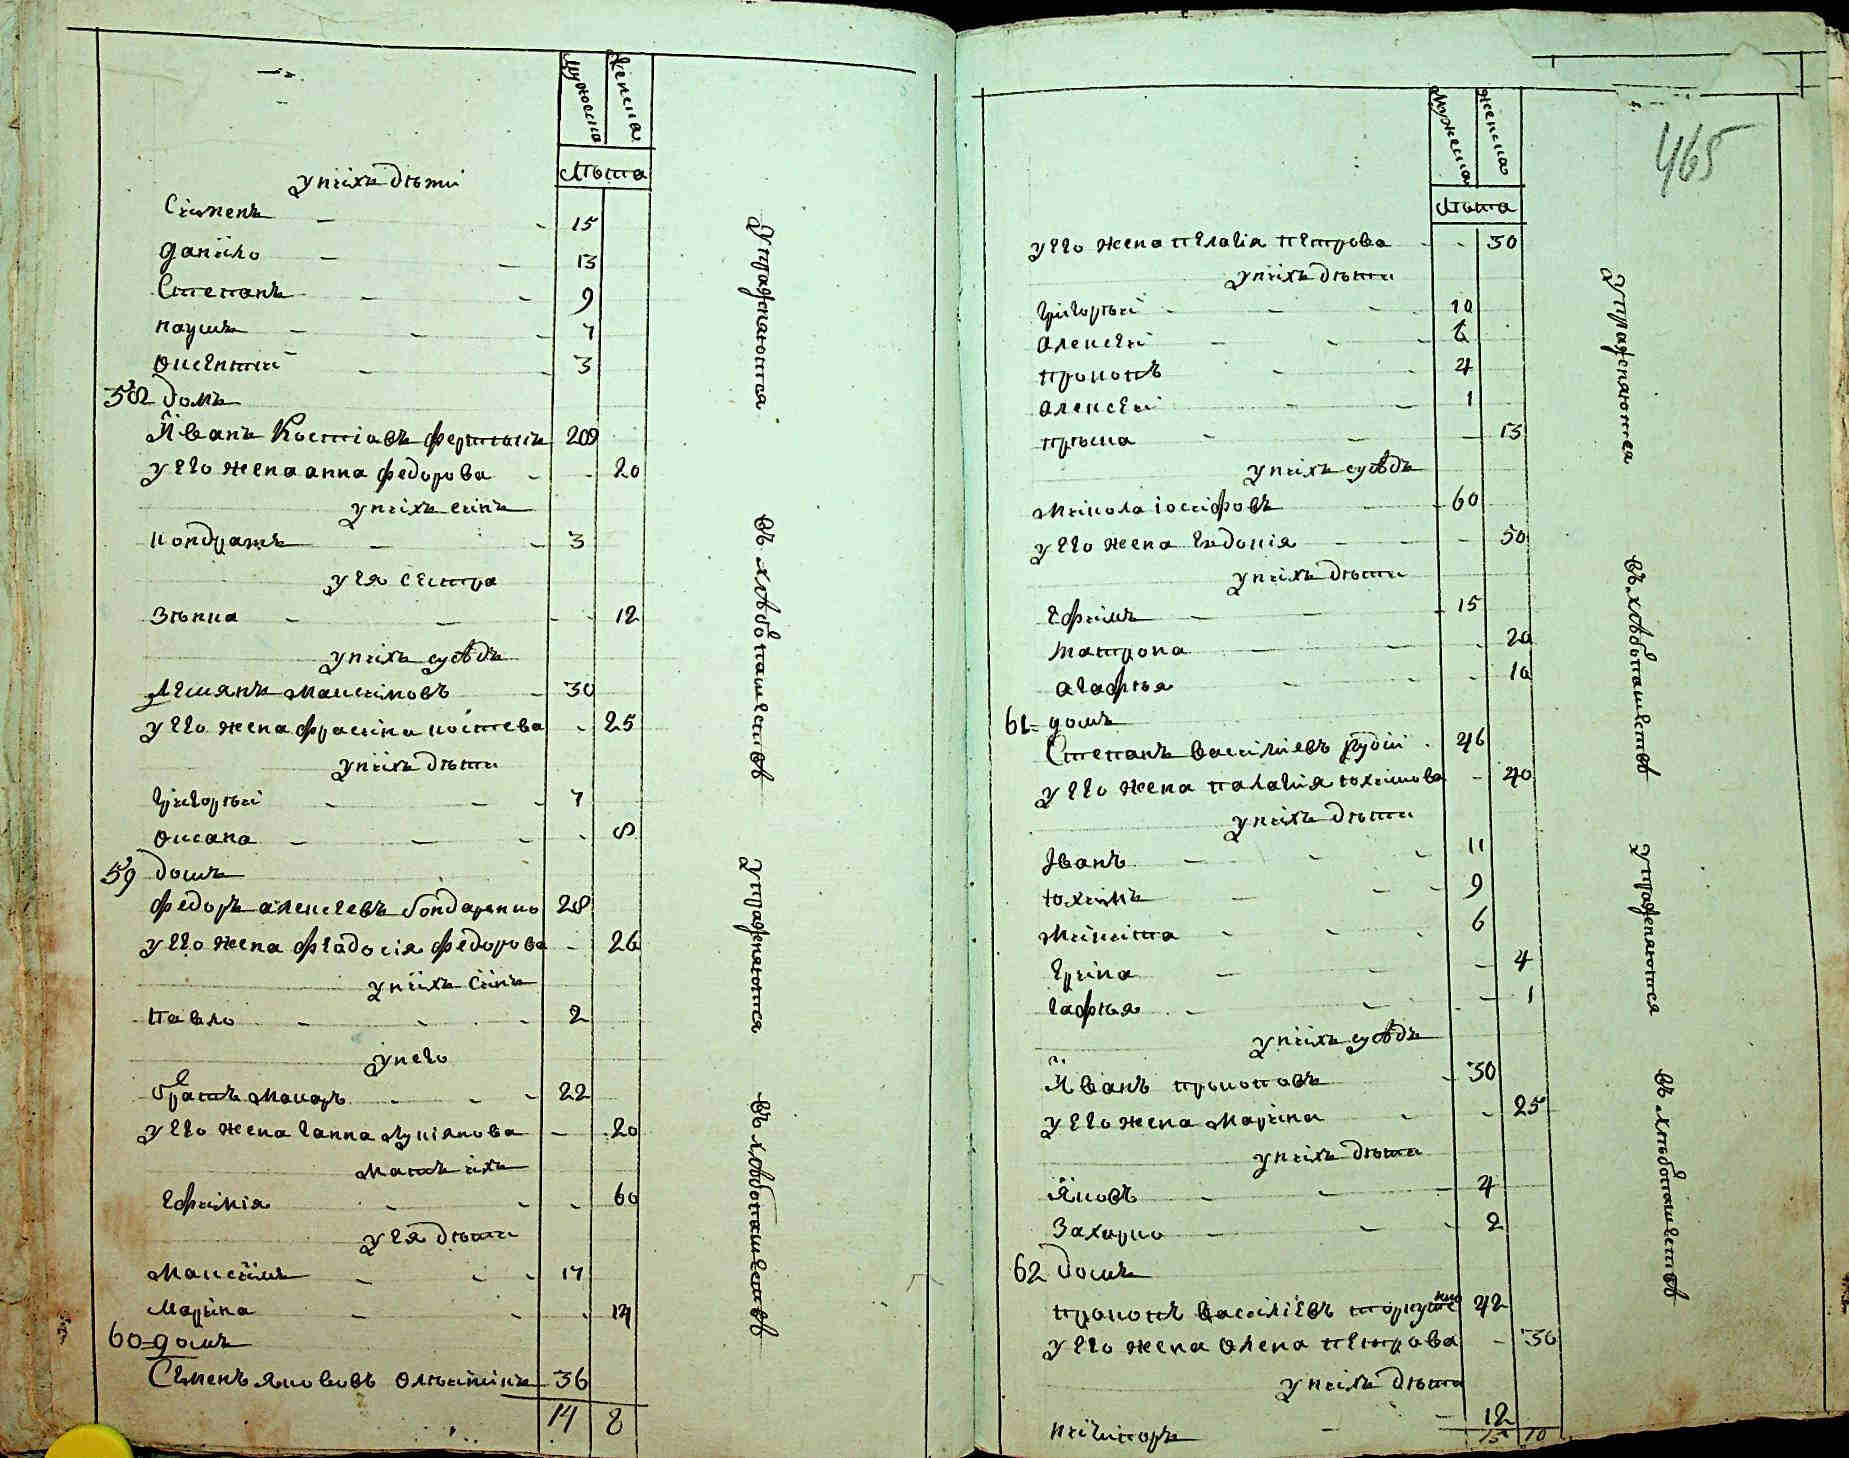 мужеска
женска
лѣта
у нихъ дѣти
Сименъ 15
данило 13
Степанъ 9
наумъ 7
Оксентий 3
58 домъ
Иванъ Костіовъ
у его жена анна федорова 20
у нихъ синъ
кондратъ 3
у ея сестра
Зѣнка 12
у нихъ сусѣдъ
Демянъ максимовъ 30
у его жена фросина костева 25
у нихъ дѣти
григорѣй 7
Оксана 8
59 домъ
федоръ алексеевъ бондаренко 28
у его жена феодосія федорова 26
у нихъ синъ
павло 2
у него
братъ макаръ 22
у его жена ганна лукіянова 20
мать ихъ
Ефимія 60
у ея дѣти
максимъ 17
марина 14
60 домъ
Семенъ якововъ 36
14 8
упражняются
въ хлѣбопашествѣ
упражняются
въ хлѣбопашествѣ
465
мужеска
женска
лѣта
у его жена пелагія петрова 30
у нихъ дѣти
григорѣй 10
алексѣй 6
прокопъ 4
алексѣй 1
прѣска 13
у нихъ сусѣдъ
микола іосифовъ 60
у его жена евдокія 50
у нихъ дѣти
Ефимъ 15
матрона 20
агафѣя 10
61 домъ
Степанъ василиевъ рудий 46
у его жена палагия юхимова 40
у нихъ дѣти
Іванъ 11
юхимъ 9
микита 6
Ерина 4
гафѣя 1
у нихъ сусѣдъ
Иванъ прокоповъ 30
у его жена марина 25
у нихъ дѣти
яковъ 4
Захарко 2
62 домъ
прокопъ василіевъ 42
у его жена олена петрова 30
у нихъ дѣти
ничипоръ 12
15 10
упражняются
въ хлѣбопашествѣ
упражняются
въ хлѣбопашествѣ